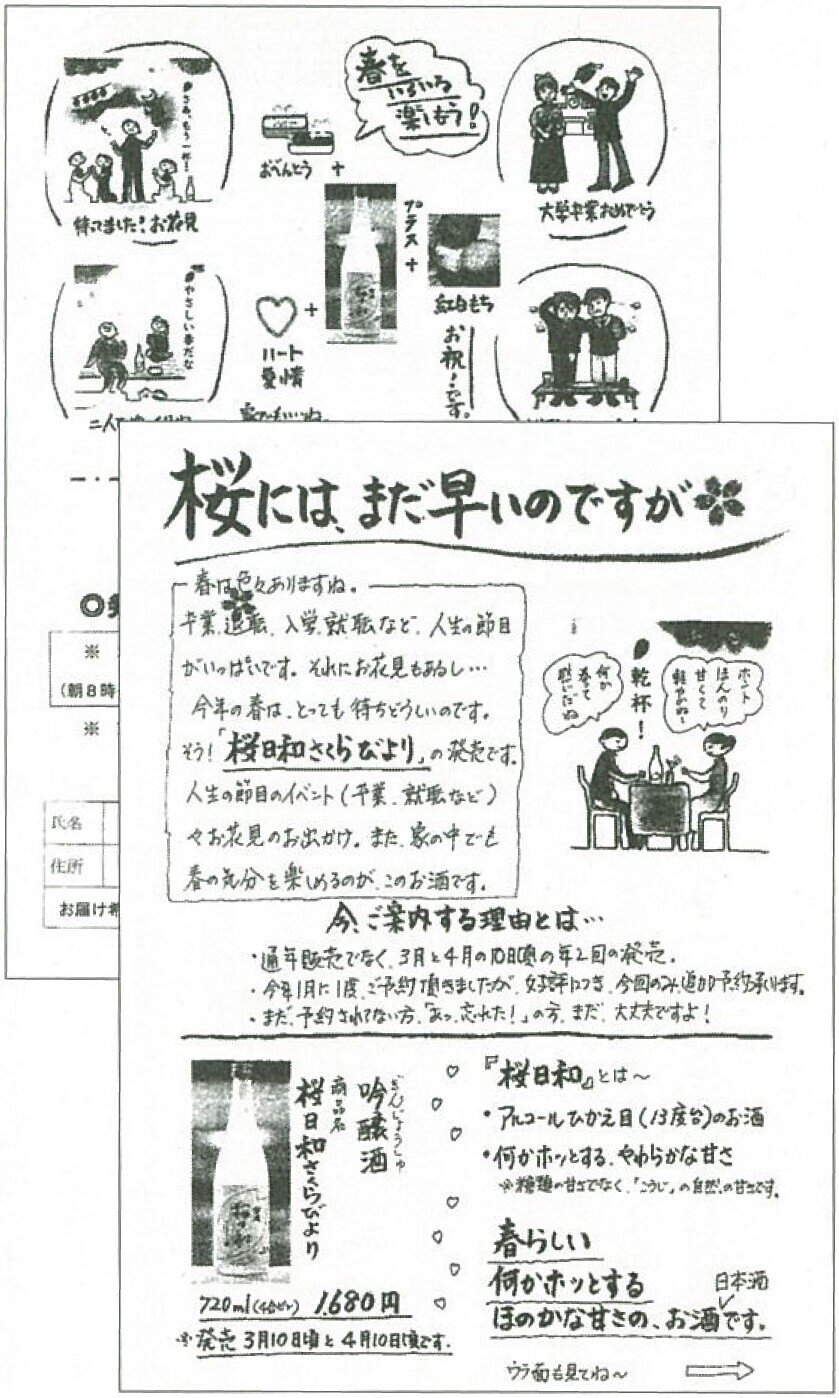 春を
いろいろ
楽しもう！
さあ、もう一杯…
待ってました！お花見
おべんとう
+
プラス
+
紅白もち
お祝い！です。
大学卒業おめでとう
やさしい春だな
+
ハート
愛情
家でもいいね
桜には、まだ早いのですが
春は色々ありますね。
卒業、退転、入学、就転など、人生の節目
がいっぱいです。それにお花見もあるし…
今年の春は、とっても待ちどうしいのです。
そう！「桜日和さくらびより」の発売です。
人生の節目のイベント（卒業、就転など）
やお花見のお出かけ。また、家の中でも
春の気分を楽しめるのが、このお酒です。
乾杯！
ホント
ほんのり
甘くて
軽やかね～
何か
春って
感じだね
今、ご案内する理由とは…
・通年販売でなく、3月と4月の10日頃の年2回の発売。
・今年1月に1度、ご予約頂きましたが、好評につき、今回のみ追加予約承ります。
・まだ、予約されてない方、「あっ、忘れた！」の方、まだ、大丈夫ですよ！
ぎんじょうしゅ
吟醸酒
商品名
桜日和さくらびより
720ml（4合ビン） 1,680円
※発売 3月10日頃と4月10日頃です。
『桜日和』とは～
・アルコールひかえ目（13度台）のお酒
・何かホッとする、やわらかな甘さ
※糖類の甘さでなく、「こうじ」の自然の甘さです。
春らしい
何かホッとする
日本酒
ほのかな甘さの、お酒です。
ウラ面も見てね～
※
（朝8時
※
氏名
住所
お届け希